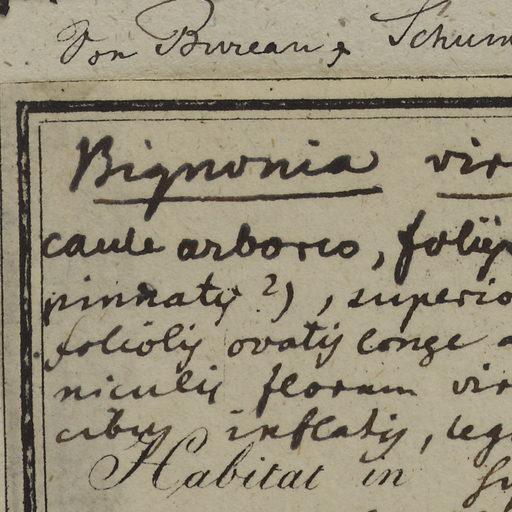 Von Bureau, Schum
Bignonia vir
caule arboreo, foliis
pinnatis ?), superio
foliolis ovatis longe a
niculis florum vir
cibus inflatis, leg
Habitat in